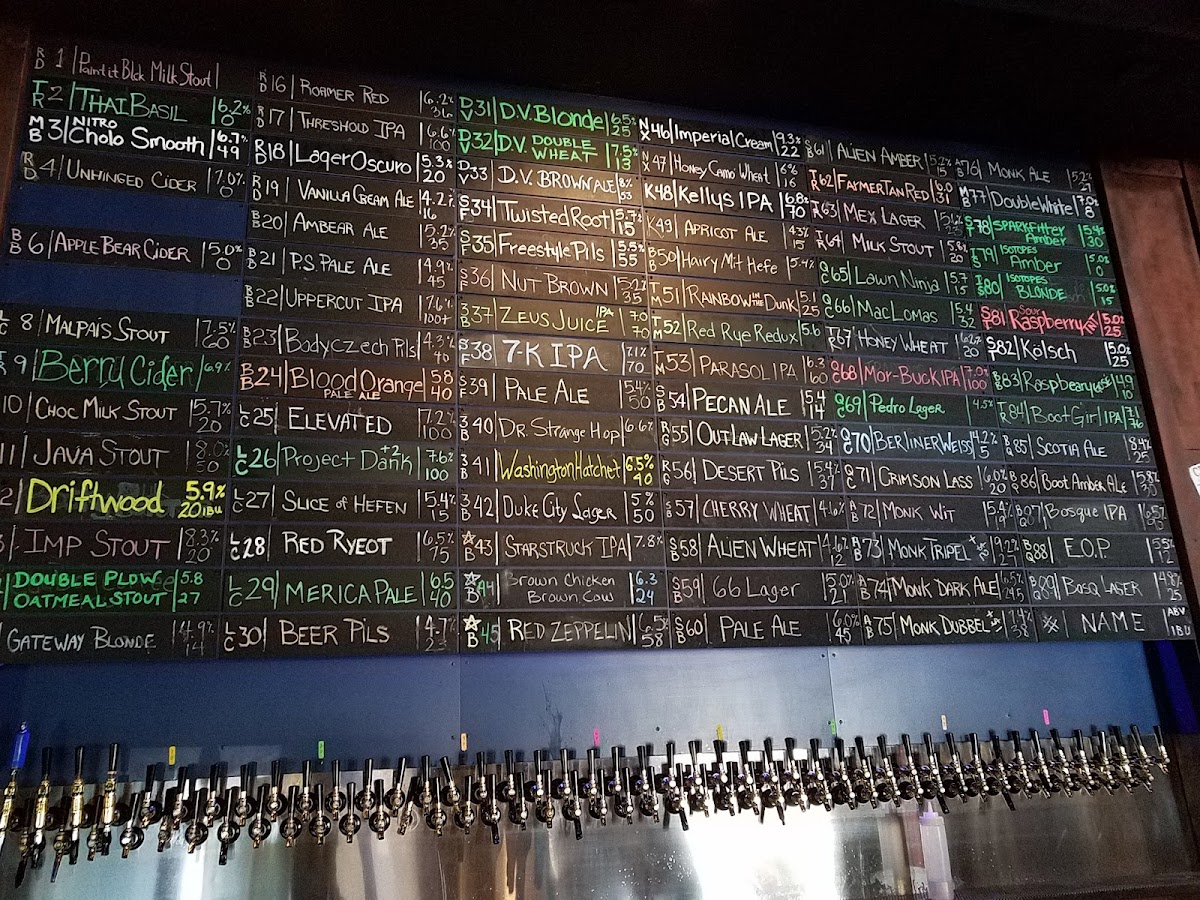 RD 1 Paint it Blck Milk Stout
TR 2 THAI BASIL 6.2% 0
MB 3 NITRO Cholo Smooth 6.7% 49
RD 4 UNHINGED CIDER 7.0% 0
BB 6 APPLE BEAR CIDER 5.0% 0
LC 8 MALPAIS STOUT 7.5% 60
9 Berry Cider 6.9%
10 CHOC MILK STOUT 5.7% 20
11 JAVA STOUT 8.0% 50
Driftwood 5.9% 20 IBU
IMP STOUT 8.3% 20
DOUBLE PLOW OATMEAL STOUT 5.8 27
GATEWAY BLONDE 4.9% 14
RD 16 ROAMER RED 6.2% 36
RD 17 THRESHOLD IPA 6.6% 100
RD 18 LAGER OSCURO 5.3% 20
RD 19 VANILLA CREAM ALE 4.2% 16
BB 20 AMBEAR ALE 5.2% 35
BB 21 P.S. PALE ALE 4.9% 45
BB 22 UPPERCUT IPA 100+
BB 23 Bodyczech Pils 4.3% 40
BB 24 Blood Orange PALE ALE 5.8 40
LC 25 ELEVATED 7.2% 100
LC 26 Project Dank +2 7.6% 100
LC 27 SLICE OF HEFEN 5.4% 15
LC 28 RED RYEOT 6.5% 75
LC 29 MERICA PALE 6.5 40
LC 30 BEER PILS 4.7% 23
DV 31 D.V. Blonde 6.5% 25
DV 32 D.V. DOUBLE WHEAT 7.5% 13
DV 33 D.V. BROWN ALE 8% 53
SF 34 Twisted Root 5.7% 15
SF 35 Freestyle Pils 5.5% 55
SF 36 NUT BROWN 5.2% 35
3B 37 ZEUS JUICE IPA 7.0 70
SF 38 7-K IPA 7.1% 70
SF 39 PALE ALE 5.4% 50
3B 40 DR. STRANGE HOP 6.6%
3B 41 Washington Hatchet 6.5% 40
3B 42 DUKE CITY LAGER 5% 50
B 43 STARSTRUCK IPA 7.8%
B 44 BROWN CHICKEN BROWN COW 6.3 24
B 45 RED ZEPPELIN 6.5% 58
NX 46 Imperial Cream 9.3% 22
NX 47 Honey Camo Wheat 6% 16
K 48 Kellys IPA 6.8% 70
K 49 APRICOT ALE 4.3% 15
B 50 Hairy Mit Hefe 5.4%
TM 51 RAINBOW IN THE DUNK 5.1 25
TM 52 Red Rye Redux 5.6
TM 53 PARASOL IPA 6.3 60
SB 54 PECAN ALE 5.4 14
RG 55 OUTLAW LAGER 5.2% 24
RG 56 DESERT PILS 5.4% 37
57 CHERRY WHEAT 4.6%
SB 58 ALIEN WHEAT 4.6% 12
SB 59 66 Lager 5.0% 21
SB 60 PALE ALE 6.0% 45
SB 61 ALIEN AMBER 5.2% 15
IR 62 FARMER TAN RED 9.0 31
IR 63 MEX LAGER
IR 64 MILK STOUT 5.8% 20
QC 65 Lawn Ninja 5.7 15
QC 66 MacLomas 5.4 32
67 HONEY WHEAT 6.2% 20
QC 68 Mor-Buck IPA 7.0% 100
QC 69 Pedro Lager 4.5%
QC 70 BERLINER WEISS 4.2% 5
QC 71 CRIMSON LASS 6.0% 20
AB 72 MONK WIT 5.4% 19
AB 73 MONK TRIPEL 9.2% 22
AB 74 MONK DARK ALE 6.5% 24.5
AB 75 MONK DUBBEL
AB 76 MONK ALE 5.2% 21
M 77 DOUBLE WHITE 7.0% 8
78 SPARKFITTER Amber 5.4% 30
79 ISOTOPES Amber 5.0% 0
80 ISOTOPES BLONDE 5.0% 15
81 SOUR Raspberry 5.0% 25
82 KÖLSCH 5.0% 25
83 Raspbeary 4.9 10
84 Boot Girl IPA 7.1 76
85 SCOTIA ALE 8.4% 25
86 Boot Amber Ale 5.8%
BQ 87 Bosque IPA 6.5%
BQ 88 E.O.P. 5.5% 12
BQ 89 BOSQ LAGER 4.8% 25
# NAME ABV IBU